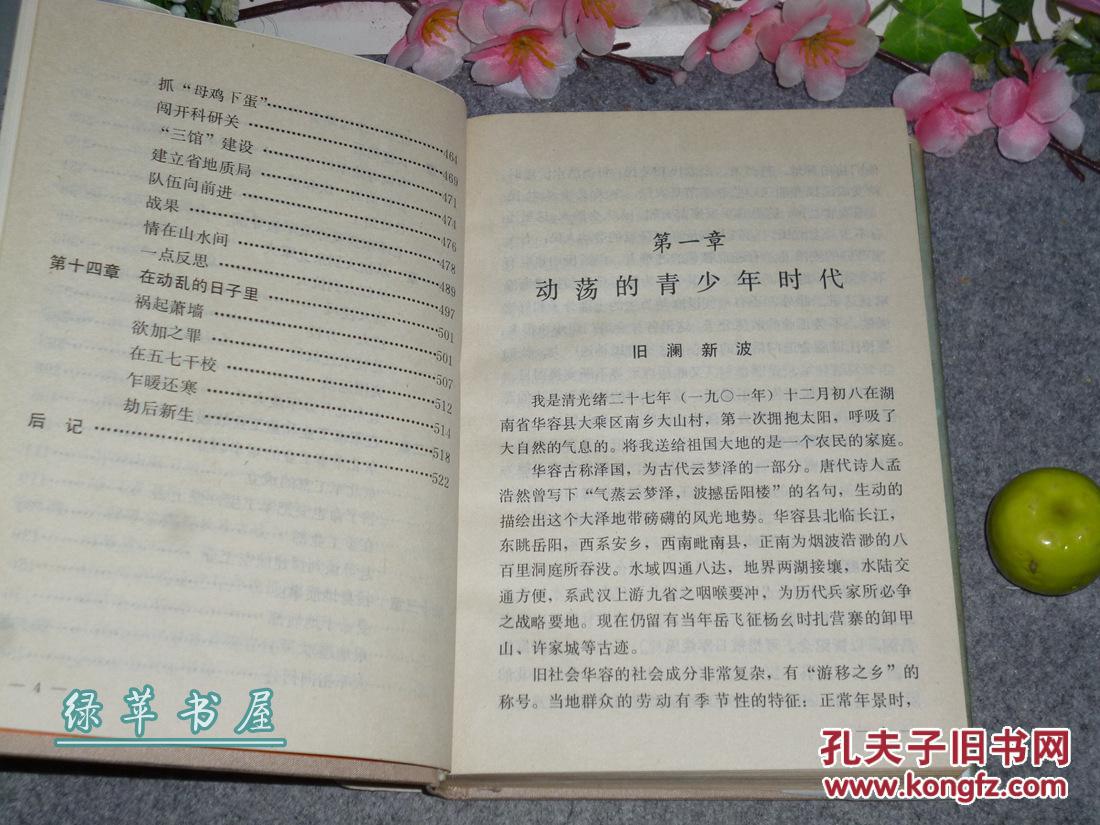 抓“母鸡下蛋”……464
闯开科研关……469
“三馆”建设……471
建立省地质局……474
队伍向前进……476
战果……478
情在山水间……489
一点反思……497
第十四章 在动乱的日子里……501
祸起萧墙……501
欲加之罪……507
在五七干校……512
乍暖还寒……514
劫后新生……518
后 记……522
— 4 —
第一章
动荡的青少年时代
旧澜新波
我是清光绪二十七年（一九〇一年）十二月初八在湖
南省华容县大乘区南乡大山村，第一次拥抱太阳，呼吸了
大自然的气息的。将我送给祖国大地的是一个农民的家庭。
华容古称泽国，为古代云梦泽的一部分。唐代诗人孟
浩然曾写下“气蒸云梦泽，波撼岳阳楼”的名句，生动的
描绘出这个大泽地带磅礴的风光地势。华容县北临长江，
东眺岳阳，西系安乡，西南毗南县，正南为烟波浩渺的八
百里洞庭所吞没。水域四通八达，地界两湖接壤，水陆交
通方便，系武汉上游九省之咽喉要冲，为历代兵家所必争
之战略要地。现在仍留有当年岳飞征杨幺时扎营寨的卸甲
山、许家城等古迹。
旧社会华容的社会成分非常复杂，有“游移之乡”的
称号。当地群众的劳动有季节性的特征：正常年景时，
绿苹书屋
孔夫子旧书网
www.kongfz.com